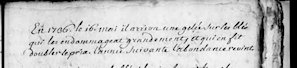 En 1706. le 16. mai il arriva une gelée sur les blés
qui les endommagea grandement, et qui en fit
doubler le prix. L'année suivante l'abondance revint.